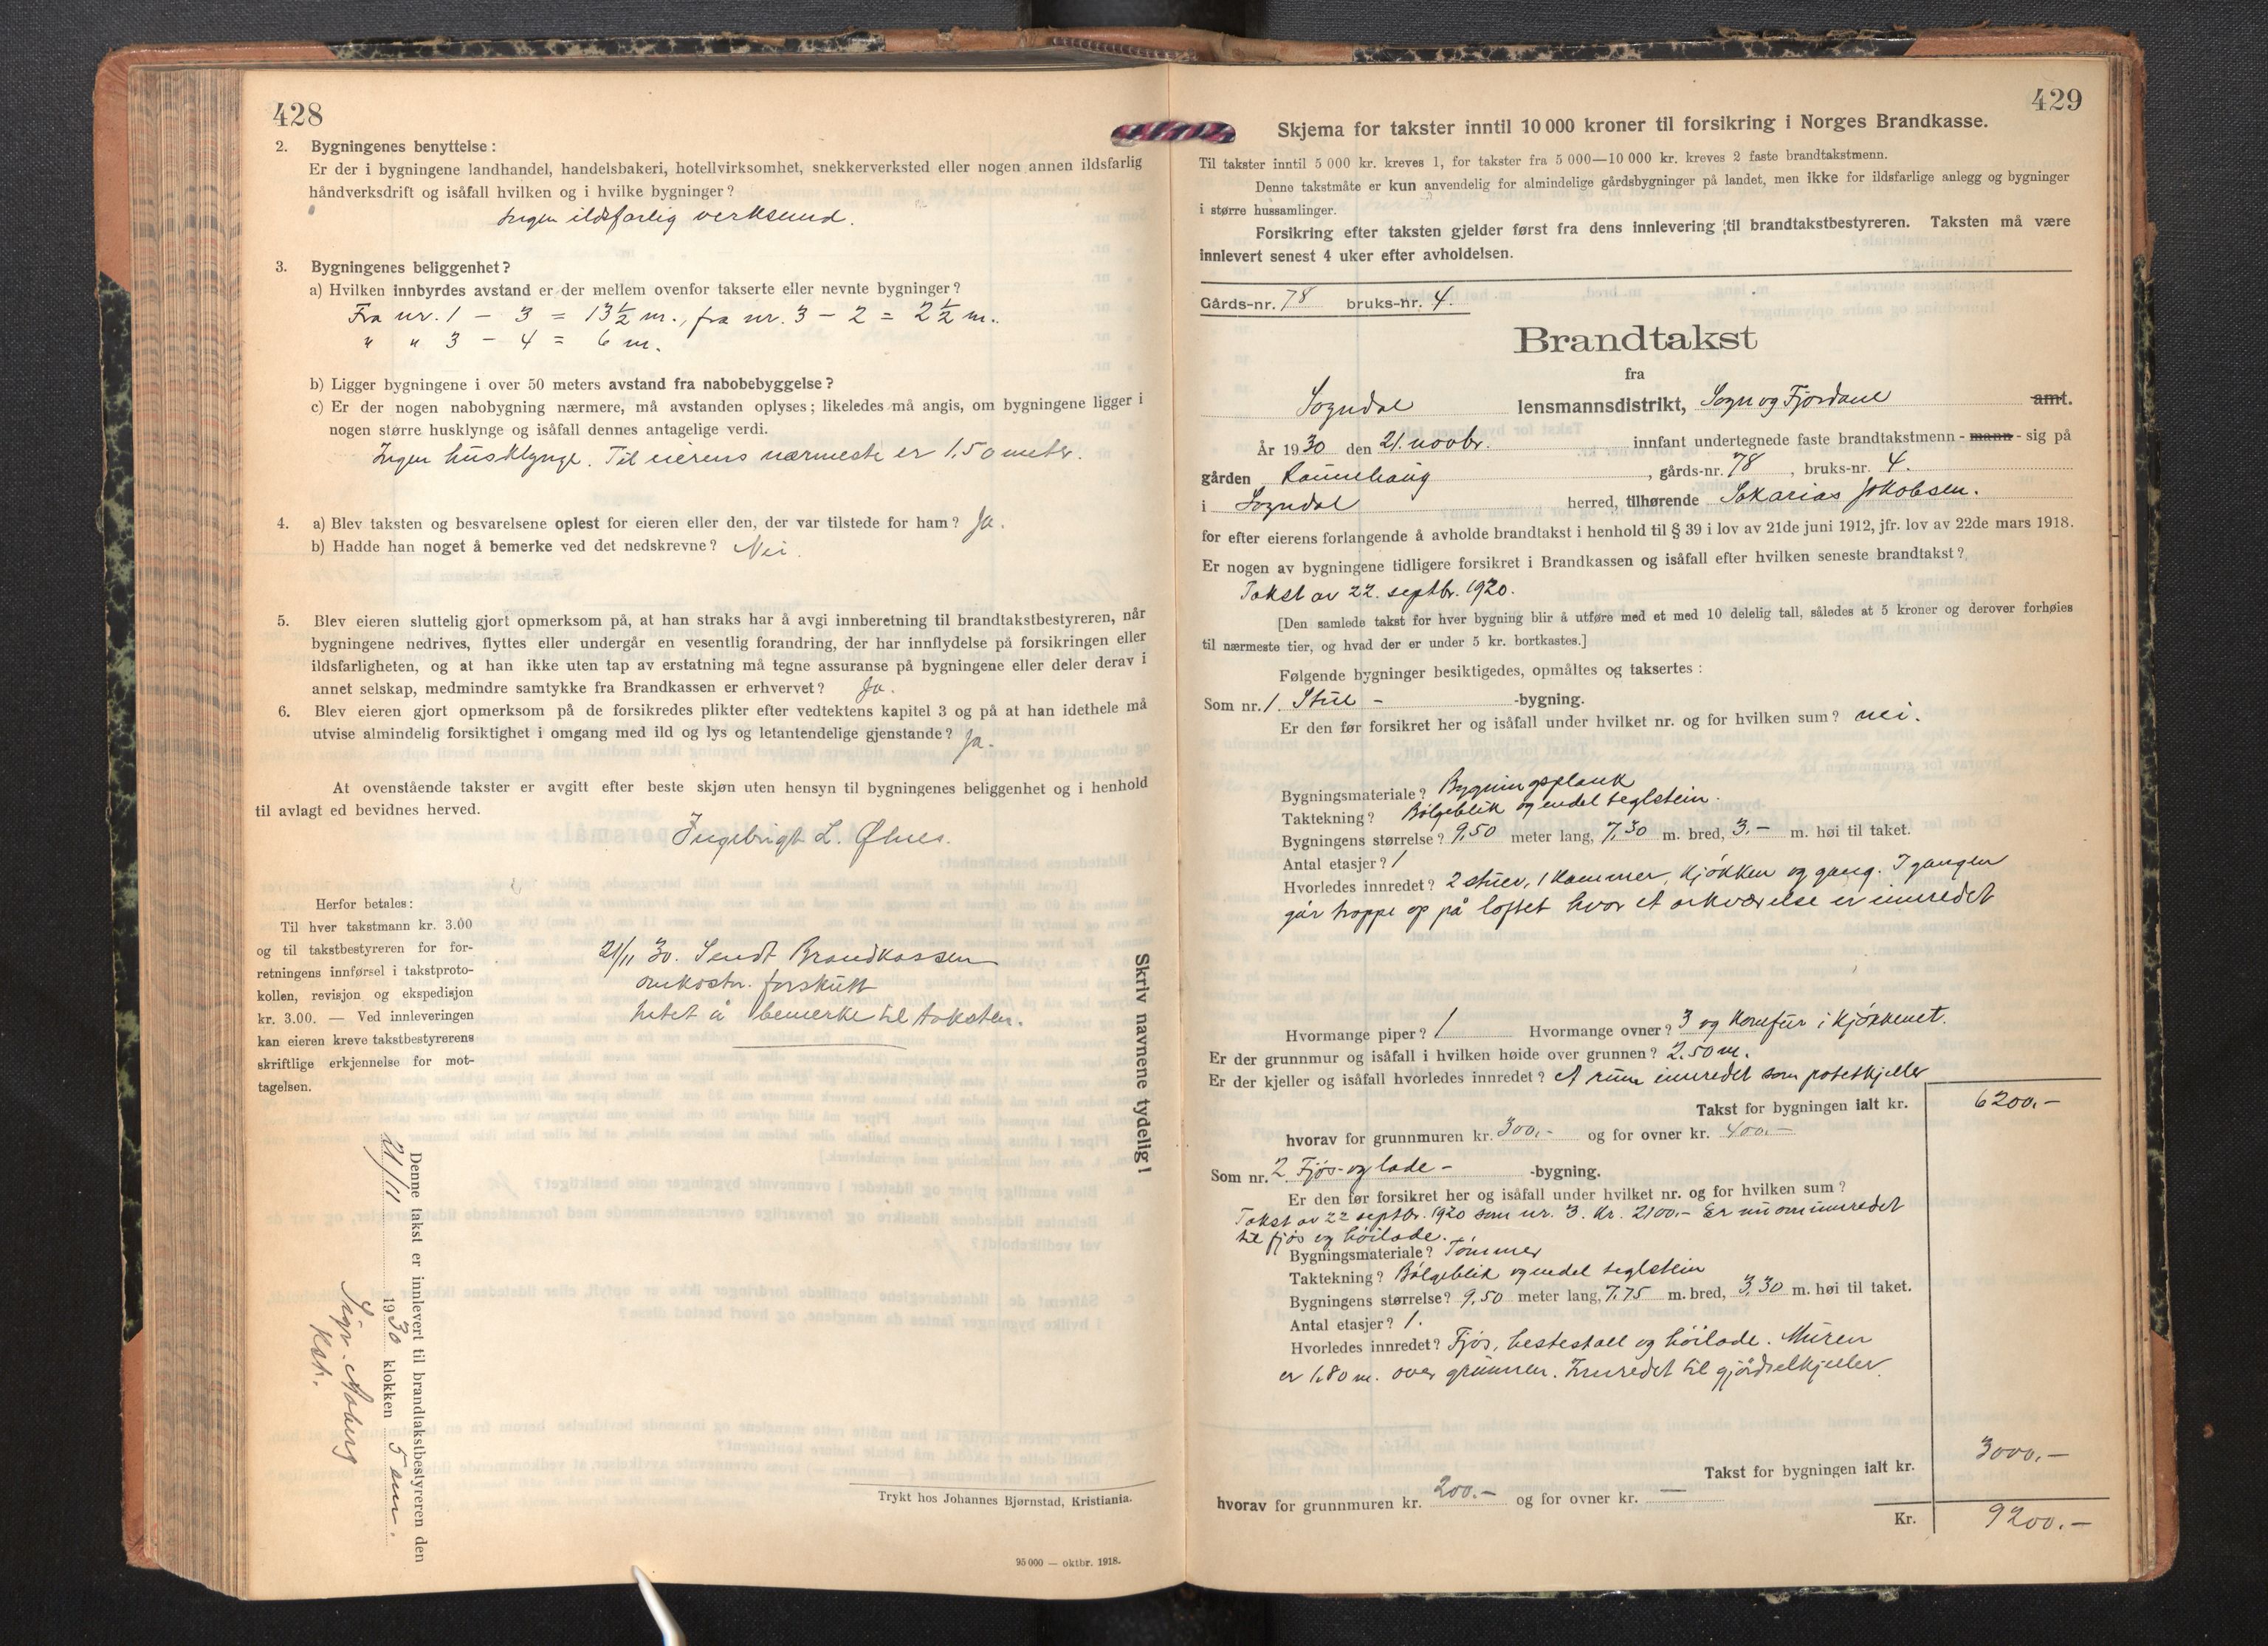 428
2. Bygningenes benyttelse :
Er der i bygningene landhandel, handelsbakeri, hotellvirksomhet, snekkerverksted eller nogen annen ildsfarlig
håndverksdrift og isåfall hvilken og i hvilke bygninger?
Ingen ildsfarlig verksemd.
3. Bygningenes beliggenhet?
a) Hvilken innbyrdes avstand er der mellem ovenfor takserte eller nevnte bygninger?
Fra nr. 1 - 3 = 13½ m., fra nr. 3 - 2 = 2½ m.
" " 3 - 4 = 6 m.
b) Ligger bygningene i over 50 meters avstand fra nabobebyggelse?
c) Er der nogen nabobygning nærmere, må avstanden oplyses; likeledes må angis, om bygningene ligger i
nogen større husklynge og isåfall dennes antagelige verdi.
Ingen husklynge. Til eierens nærmeste er 1,50 meter.
4. a) Blev taksten og besvarelsene oplest for eieren eller den, der var tilstede for ham? Ja.
b) Hadde han noget å bemerke ved det nedskrevne? Nei.
5. Blev eieren sluttelig gjort opmerksom på, at han straks har å avgi innberetning til brandtakstbestyreren, når
bygningene nedrives, flyttes eller undergår en vesentlig forandring, der har innflydelse på forsikringen eller
ildsfarligheten, og at han ikke uten tap av erstatning må tegne assuranse på bygningene eller deler derav i
annet selskap, medmindre samtykke fra Brandkassen er erhvervet? Ja.
6. Blev eieren gjort opmerksom på de forsikredes plikter efter vedtektens kapitel 3 og på at han idethele må
utvise almindelig forsiktighet i omgang med ild og lys og letantendelige gjenstande? Ja.
At ovenstående takster er avgitt efter beste skjøn uten hensyn til bygningenes beliggenhet og i henhold
til avlagt ed bevidnes herved.
Ingebrigt L. Ølnes.
Herfor betales:
Til hver takstmann kr. 3.00
og til takstbestyreren for for-
retningens innførsel i takstproto-
kollen, revisjon og ekspedisjon
kr. 3.00. — Ved innleveringen
kan eieren kreve takstbestyrerens
skriftlige erkjennelse for mot-
tagelsen.
21/11 30. Sendt Brandkassen
omkostn. forskutt
Intet å bemerke til taksten.
Skriv navnene tydelig!
Denne takst er innlevert til brandtakstbestyreren den
21/11 1930 klokken 5 em.
Sigv. Aaberg
Kst.
Trykt hos Johannes Bjørnstad, Kristiania.
95 000 — oktbr. 1918.
429
Skjema for takster inntil 10 000 kroner til forsikring i Norges Brandkasse.
Til takster inntil 5 000 kr. kreves 1, for takster fra 5 000—10 000 kr. kreves 2 faste brandtakstmenn.
Denne takstmåte er kun anvendelig for almindelige gårdsbygninger på landet, men ikke for ildsfarlige anlegg og bygninger
i større hussamlinger.
Forsikring efter taksten gjelder først fra dens innlevering til brandtakstbestyreren. Taksten må være
innlevert senest 4 uker efter avholdelsen.
Gårds-nr. 78 bruks-nr. 4.
Brandtakst
fra
Sogndal lensmannsdistrikt, Sogn og Fjordane amt.
År 1930 den 21. novbr. innfant undertegnede faste brandtakstmenn - mann - sig på
gården Raunehaug, gårds-nr. 78, bruks-nr. 4.
i Sogndal herred, tilhørende Sakarias Jakobsen.
for efter eierens forlangende å avholde brandtakst i henhold til § 39 i lov av 21de juni 1912, jfr. lov av 22de mars 1918.
Er nogen av bygningene tidligere forsikret i Brandkassen og isåfall efter hvilken seneste brandtakst?
Takst av 22. septbr. 1920.
[Den samlede takst for hver bygning blir å utføre med et med 10 delelig tall, således at 5 kroner og derover forhøies
til nærmeste tier, og hvad der er under 5 kr. bortkastes.]
Følgende bygninger besiktigedes, opmåltes og taksertes :
Som nr. 1. Stue - -bygning.
Er den før forsikret her og isåfall under hvilket nr. og for hvilken sum? nei.
Bygningsmateriale? Bygningsplank
Taktekning? Bølgeblik og endel teglstein.
Bygningens størrelse? 9,50 meter lang, 7,30 m. bred, 3,- m. høi til taket.
Antal etasjer? 1
Hvorledes innredet? 2 stuer, 1 kammer, kjøkken og gang. I gangen
går trappe op på loftet hvor et arkværelse er innredet
Hvormange piper? 1 Hvormange ovner? 3 og komfur i kjøkkenet.
Er der grunnmur og isåfall i hvilken høide over grunnen? 2,50 m.
Er der kjeller og isåfall hvorledes innredet? et rum innredet som potetkjeller
Takst for bygningen ialt kr. 6200,-
hvorav for grunnmuren kr. 300,- og for ovner kr. 400,-
Som nr. 2 Fjøs- og lade- -bygning.
Er den før forsikret her og isåfall under hvilket nr. og for hvilken sum?
Takst av 22 septbr. 1920 som nr. 3. Kr. 2100.- Er nu ominnredet
til fjøs og høilade.
Bygningsmateriale? Tømmer
Taktekning? Bølgeblik og endel teglstein
Bygningens størrelse? 9,50 meter lang, 7,75 m. bred, 3,30 m. høi til taket.
Antal etasjer? 1.
Hvorledes innredet? Fjøs, hestestall og høilade. Muren
er 1,80 m. over grunnen. Innredet til gjødselkjeller.
Takst for bygningen ialt kr. 3000,-
hvorav for grunnmuren kr. 200.- og for ovner kr. —
Kr. 9200.-